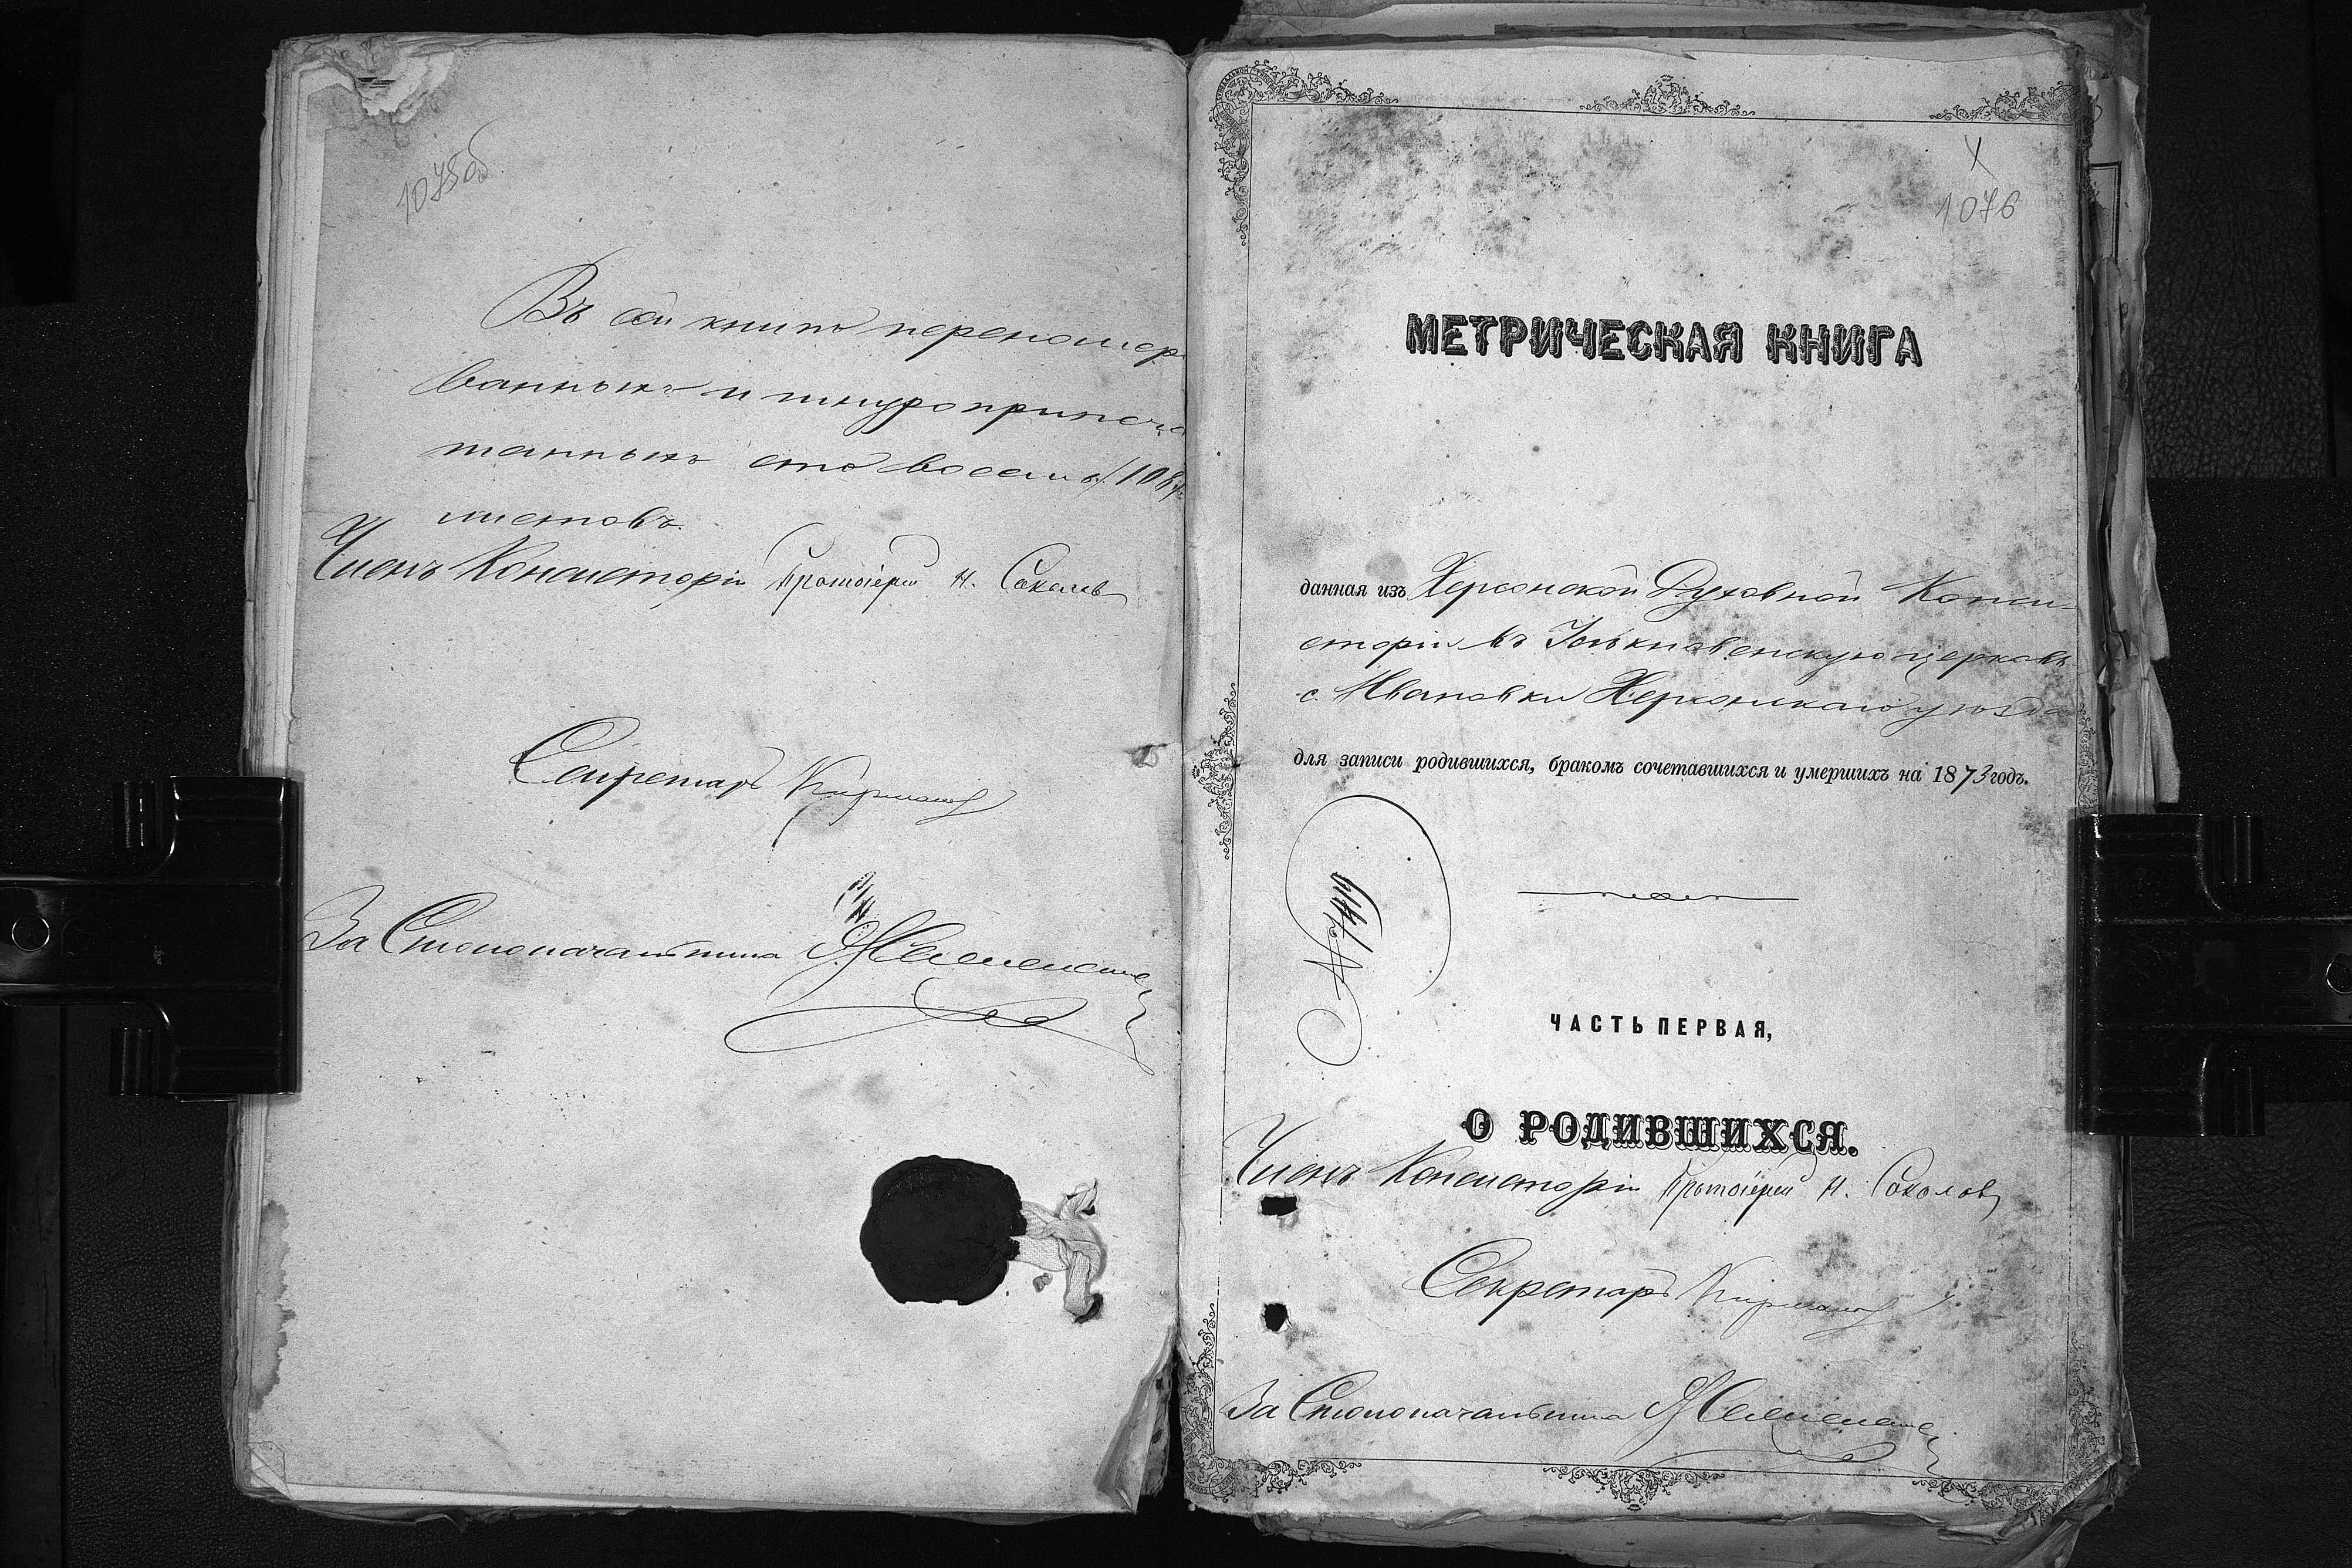 1075об
Въ сей книгѣ перенумеро
ванныхъ и шнуроприпеча
танныхъ сто восемь /108/
листовъ.
Членъ Консисторіи Протоіерей Н. Соколовъ
Секретарь
За Столоначальника
1076
МЕТРИЧЕСКАЯ КНИГА
данная изъ Херсонской Духовной Конси-
сторіи въ церковь
с. Ивановки Херсонскаго уѣзда
для записи родившихся, бракомъ сочетавшихся и умершихъ на 1873 годъ.
№
ЧАСТЬ ПЕРВАЯ,
О РОДИВШИХСЯ.
Членъ Консисторіи Протоіерей Н. Соколовъ
Секретарь
За Столоначальника